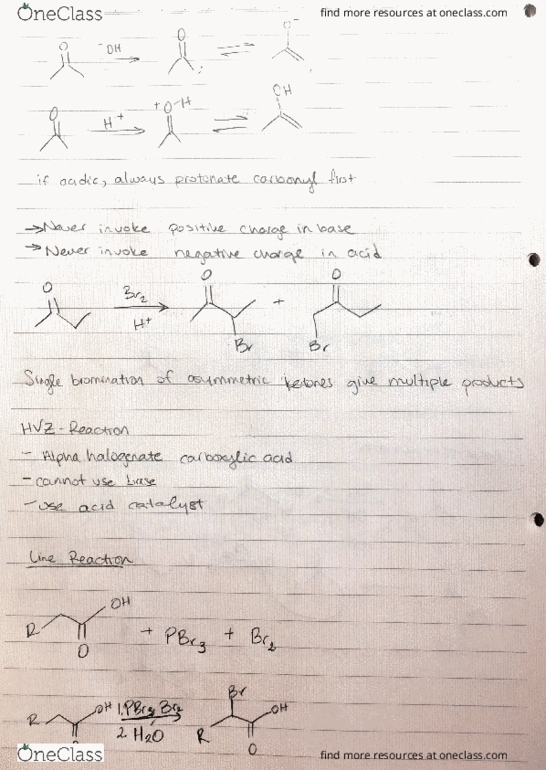 OneClass
find more resources at oneclass.com
O
-OH
O
O-
O
H+
+O-H
OH
if acidic, always protonate carbonyl first
→ Never invoke positive charge in base
→ Never invoke negative charge in acid
O
Br2
H+
O
+
O
Br
Br
Single bromination of asymmetric ketones give multiple products
HVZ-Reaction
- Alpha halogenate carboxylic acid
- cannot use base
- use acid catalyst
Line Reaction
R
OH
O
+ PBr3 + Br2
R
OH
1. PBr3 Br2
2. H2O
Br
R
OH
O
OneClass
find more resources at oneclass.com